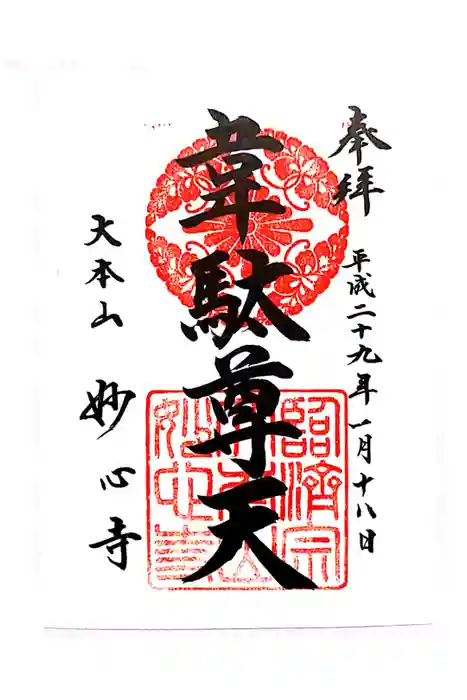 奉拝
平成二十九年一月十八日
韋駄尊天
臨済宗
大本山
妙心寺
大本山 妙心寺